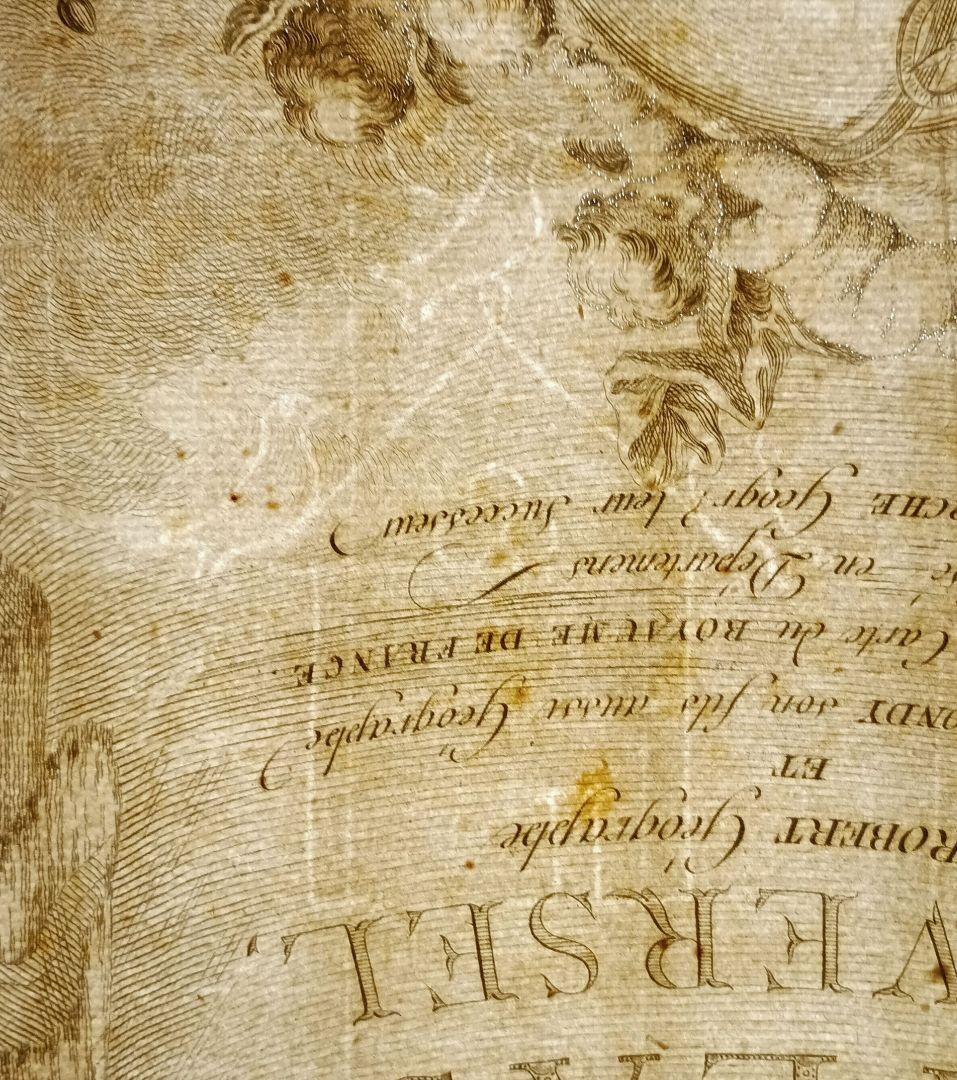 VERSEL
ROBERT Géographe
ET
ONDY son fils aussi Géographe
Carte du ROYAUME DE FRANCE.
é en Départemens
RCHE Géogr. leur Successeur